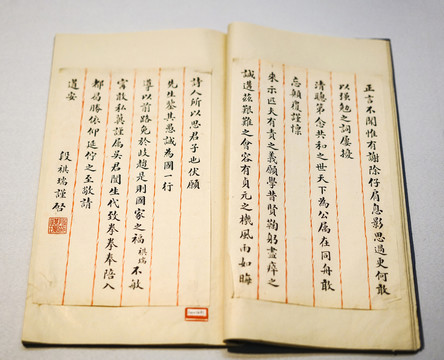 正言不聞惟有謝除仔肩息影思過更何敢
以強勉之詞屢擾
清聽第念共和之世天下為公屬在同舟敢
忘顛覆謹懍
來示匹夫有責之義願學昔賢鞠躬盡瘁之
誠遘茲艱難之會容有貞元之機風雨如晦
詩人所以思君子也伏願
先生鑒其愚誠為國一行
導以前路免於歧趨是則國家之福祺瑞不敏
實敢私冀謹屬吳君間生代致拳拳奉陪入
都曷勝依仰延佇之至敬請
道安
段祺瑞謹啓